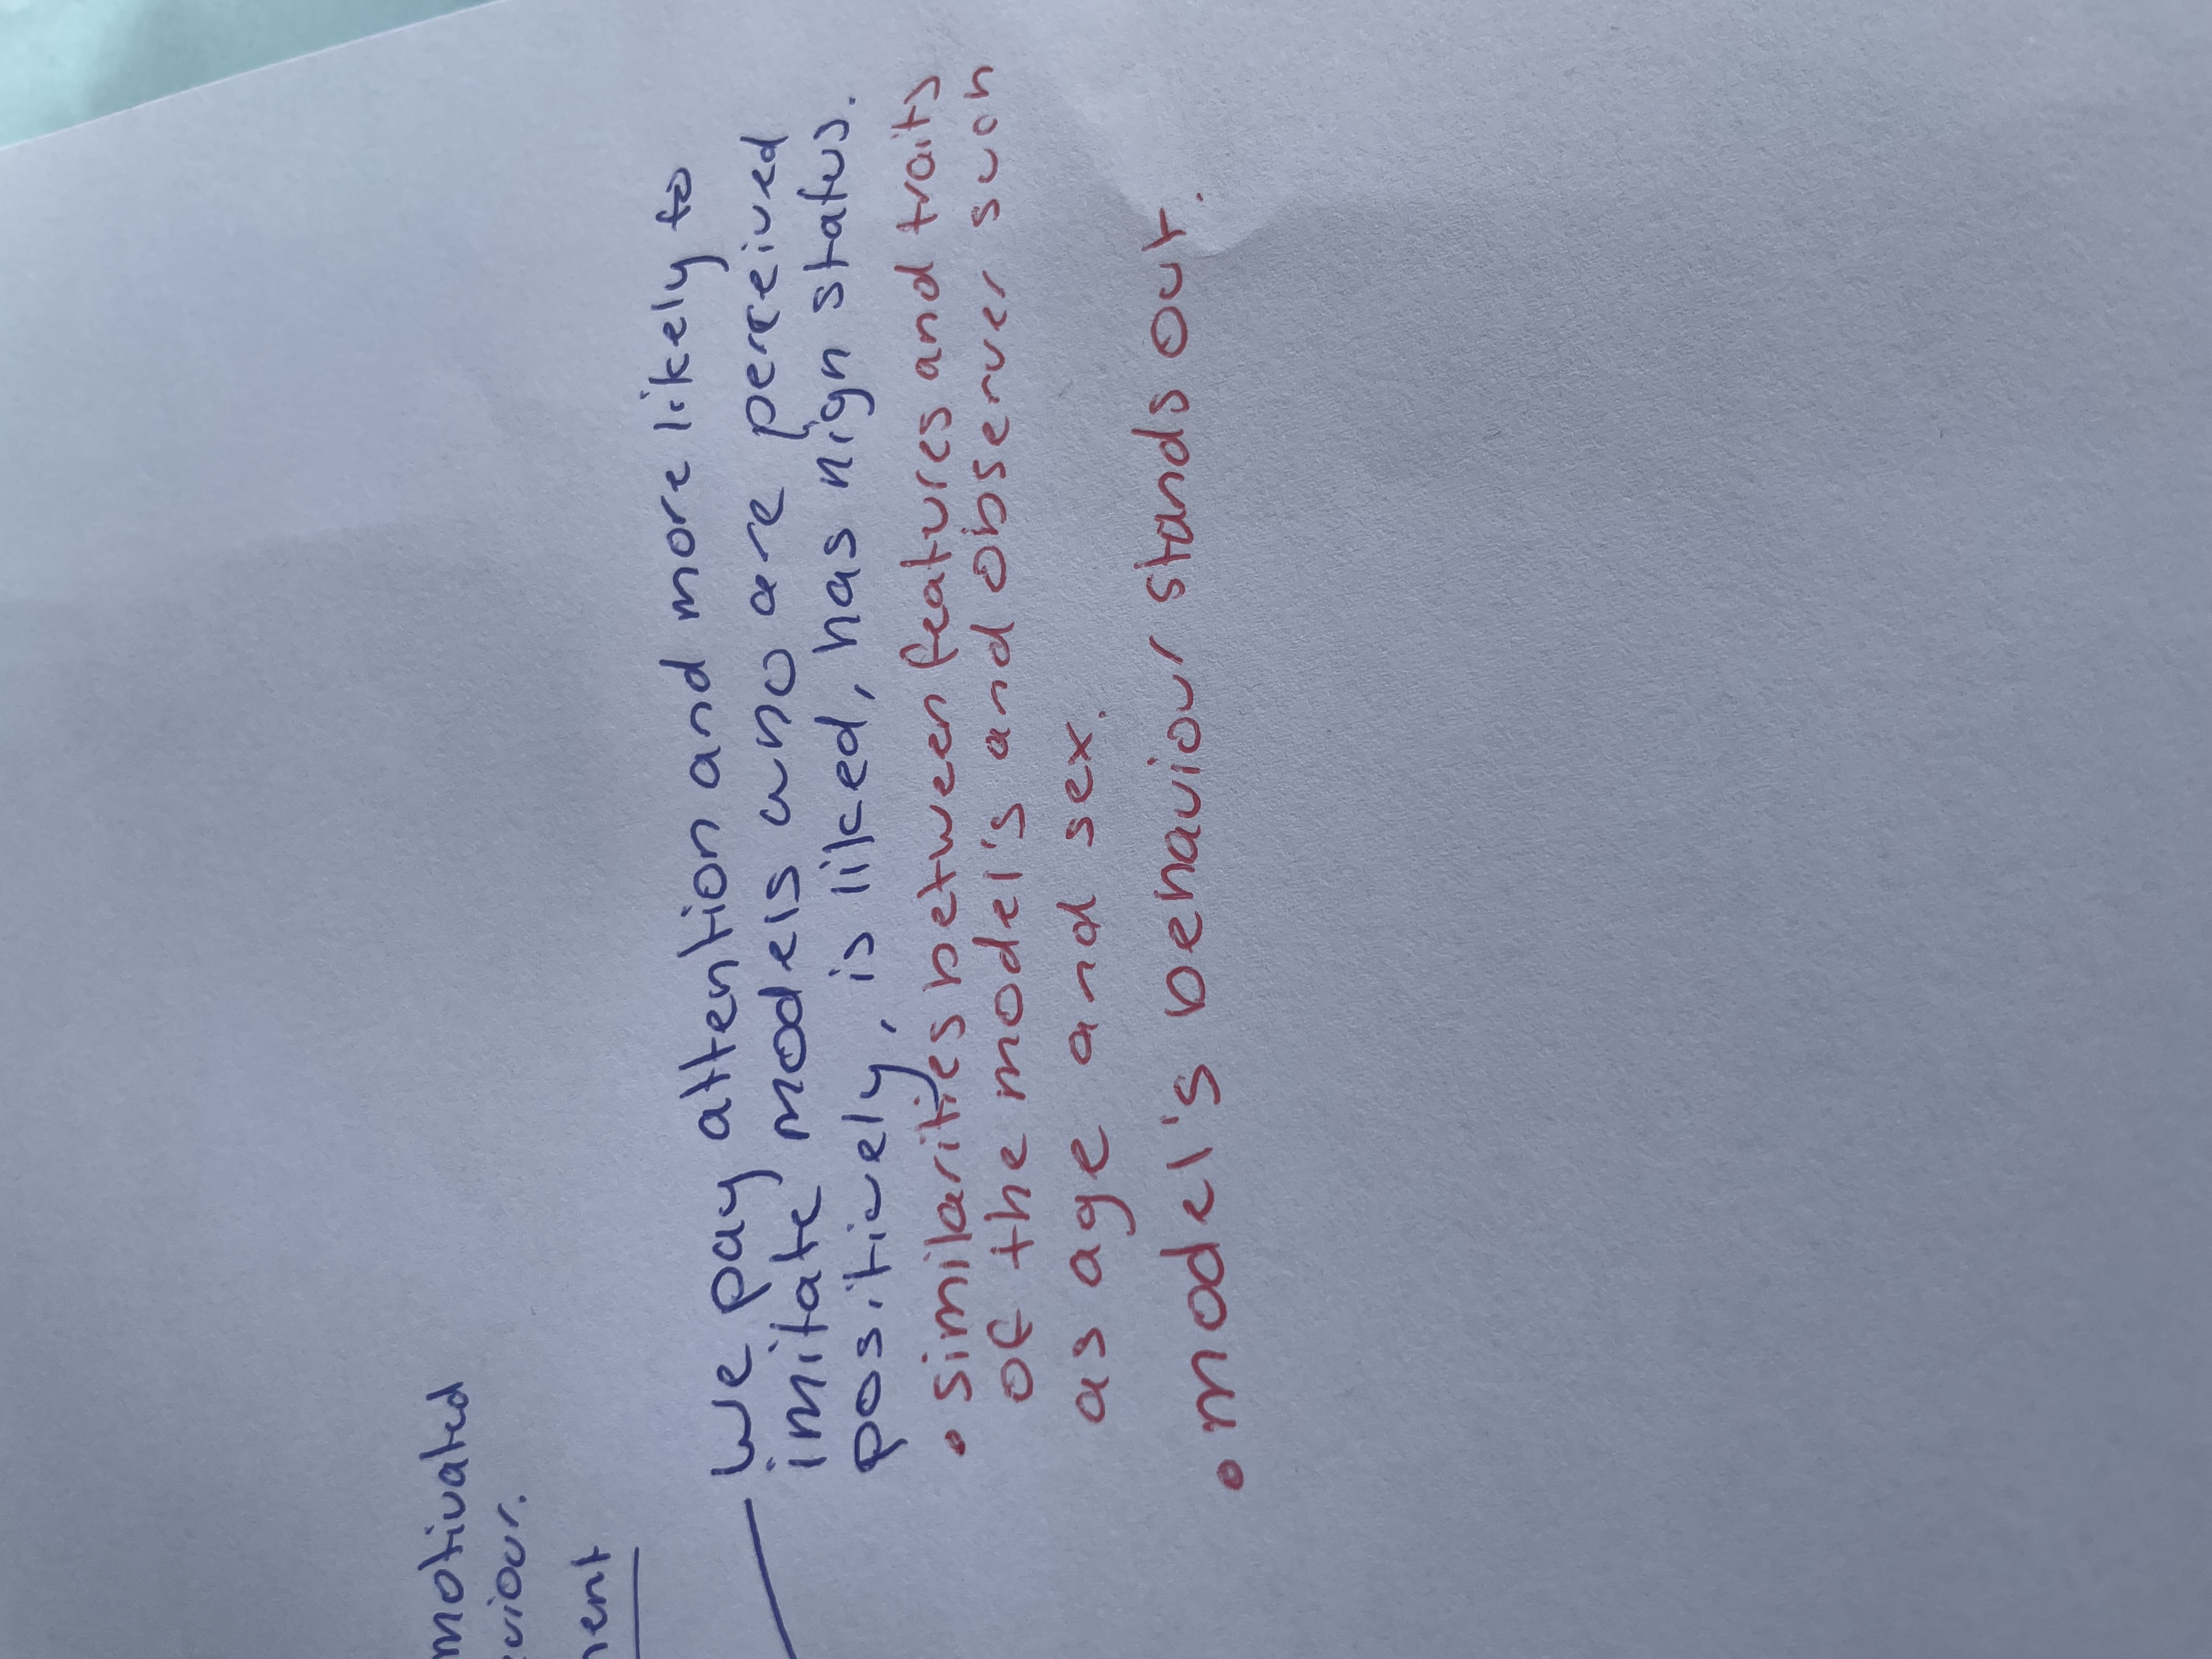 motivated
viour.
ment
We pay attention and more likely to
imitate models who are perceived
positively, is liked, has high status.
• similarities between features and traits
of the model's and observer such
as age and sex.
• model's behaviour stands out.